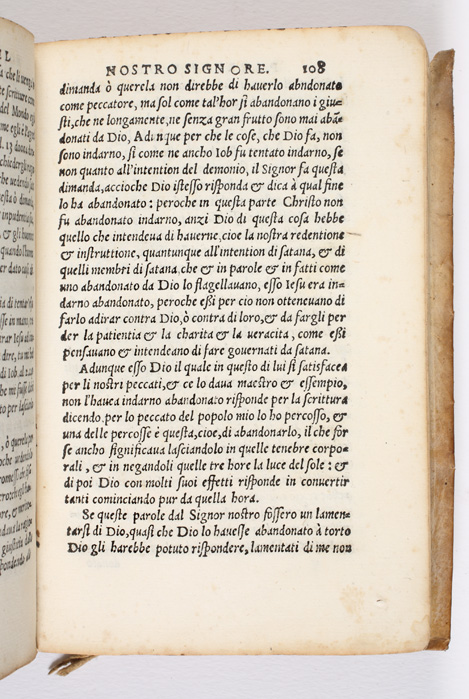 NOSTRO SIGNORE. 108
dimanda ò querela non direbbe di hauerlo abndonato
come peccatore, ma sol come tal'hor si abandonano i giu-
sti, che ne longamente, ne senza gran frutto sono mai abã
donati da Dio, Adunque per che le cose, che Dio fa, non
sono indarno, si come ne ancho Iob fu tentato indarno, se
non quanto all'intention del demonio, il Signor fa questa
dimanda, accioche Dio istesso risponda & dica à qual fine
lo ha abandonato: peroche in questa parte Christo non
fu abandonato indarno, anzi Dio di questa cosa hebbe
quello che intendeua di hauerne, cioe la nostra redentione
& instruttione, quantunque all'intention di satana, & di
quelli membri di satana, che & in parole & in fatti come
uno abandonato da Dio lo flagellauano, esso Iesu era in-
darno abandonato, peroche eßi per cio non otteneuano di
farlo adirar contra Dio, ò contra di loro, & da fargli per
der la patientia & la charita & la veracita, come eßi
pensauano & intendeano di fare gouernati da satana.
Adunque esso Dio il quale in questo di lui si satisfacea
per li nostri peccati, & ce lo daua maestro & essempio,
non l'hauea indarno abandonato risponde per la scrittura
dicendo, per lo peccato del popolo mio lo ho percosso, &
una delle percosse è questa, cioe, di abandonarlo, il che for
se ancho significaua lasciandolo in quelle tenebre corpo-
rali, & in negandoli quelle tre hore la luce del sole: &
di poi Dio con molti suoi effetti risponde in conuertir
tanti cominciando pur da quella hora.
Se queste parole dal Signor nostro fossero un lamen-
tarsi di Dio, quasi che Dio lo hauesse abandonato à torto
Dio gli harebbe potuto rispondere, lamentati di me non